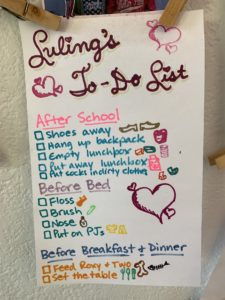 Luling's
To-Do List
After School
Shoes away
Hang up backpack
Empty lunchbox
Put away lunchbox
Put socks in dirty clothes
Before Bed
Floss
Brush
Nose
Put on PJs
Before Breakfast & Dinner
Feed Roxy & Two
Set the table